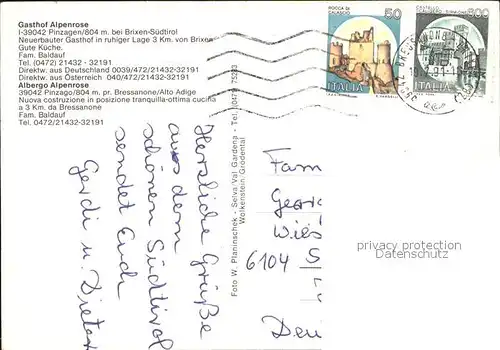 Gasthof Alpenrose
I-39042 Pinzagen/804 m. bei Brixen-Südtirol
Neuerbauter Gasthof in ruhiger Lage 3 Km. von Brixen
Gute Küche.
Fam. Baldauf
Tel. (0472) 21432-32191
Direktw. aus Deutschland 0039/472/21432-32191
Direktw. aus Österreich 040/472/21432-32191
Albergo Alpenrose
39042 Pinzago/804 m. pr. Bressanone/Alto Adige
Nuova costruzione in posizione tranquilla-ottima cucina
a 3 Km. da Bressanone
Fam. Baldauf
Tel. 0472/21432-32191
Herzliche Grüße
aus dem
schönen Südtirol
sendet Euch
Gerdi u. Dieter
Foto W. Planinschek - Selva Val Gardena - Tel. (0471) 75233
Wolkenstein Grödental
ROCCA DI
CALASCIO
50
ITALIA
CASTELLO
ITALIA
Fam
Geor
Wies
6104 S
Deu
privacy protection
Datenschutz